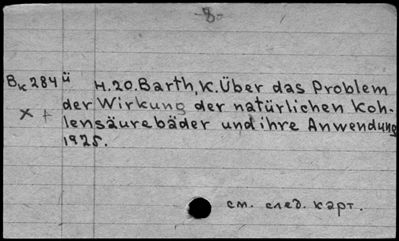 -8-
Bк 284ü н.20. Barth, K. Über das Problem
der Wirkung der natürlichen Koh-
x + lensäurebäder und ihre Anwendung
1925.
см. след. карт.